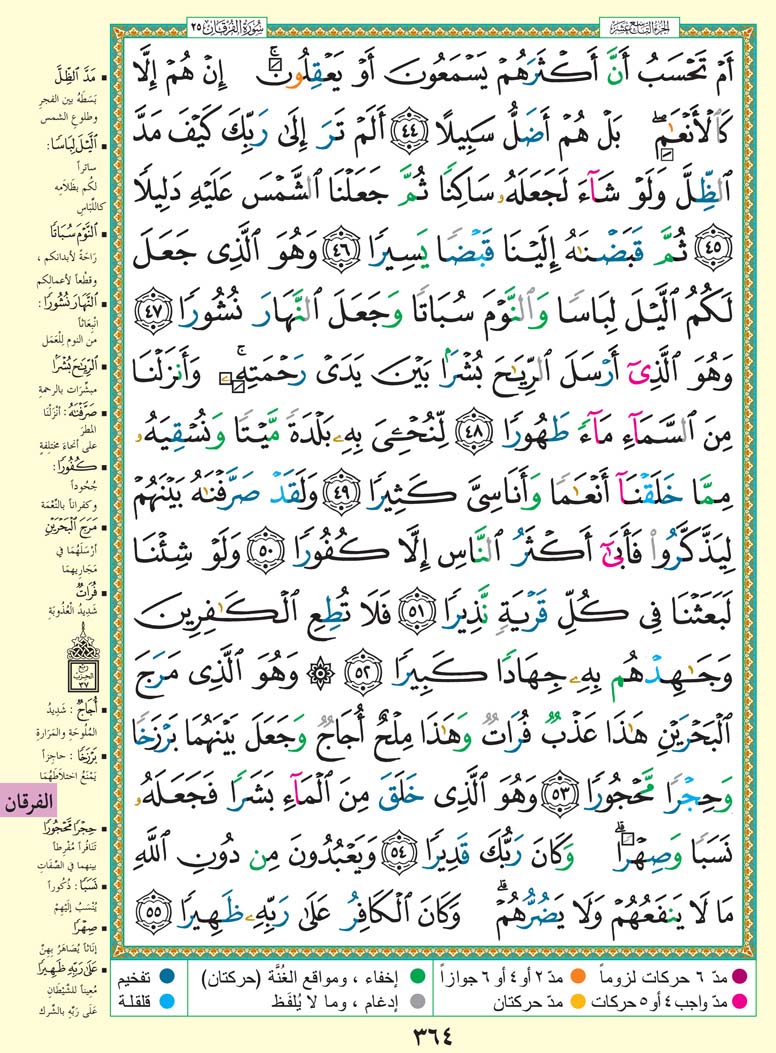 سُورَةُ الفُرْقَان ٢٥
الجزء التاسع عشر
أَمْ تَحْسَبُ أَنَّ أَكْثَرَهُمْ يَسْمَعُونَ أَوْ يَعْقِلُونَ ۚ إِنْ هُمْ إِلَّا
كَٱلْأَنْعَٰمِ ۖ بَلْ هُمْ أَضَلُّ سَبِيلًا ٤٤ أَلَمْ تَرَ إِلَىٰ رَبِّكَ كَيْفَ مَدَّ
ٱلظِّلَّ وَلَوْ شَآءَ لَجَعَلَهُۥ سَاكِنًا ثُمَّ جَعَلْنَا ٱلشَّمْسَ عَلَيْهِ دَلِيلًا
٤٥ ثُمَّ قَبَضْنَٰهُ إِلَيْنَا قَبْضًا يَسِيرًا ٤٦ وَهُوَ ٱلَّذِى جَعَلَ
لَكُمُ ٱلَّيْلَ لِبَاسًا وَٱلنَّوْمَ سُبَاتًا وَجَعَلَ ٱلنَّهَارَ نُشُورًا ٤٧
وَهُوَ ٱلَّذِىٓ أَرْسَلَ ٱلرِّيَٰحَ بُشْرًۢا بَيْنَ يَدَىْ رَحْمَتِهِۦ ۚ وَأَنزَلْنَا
مِنَ ٱلسَّمَآءِ مَآءً طَهُورًا ٤٨ لِّنُحْـِۧىَ بِهِۦ بَلْدَةً مَّيْتًا وَنُسْقِيَهُۥ
مِمَّا خَلَقْنَآ أَنْعَٰمًا وَأَنَاسِىَّ كَثِيرًا ٤٩ وَلَقَدْ صَرَّفْنَٰهُ بَيْنَهُمْ
لِيَذَّكَّرُوا۟ فَأَبَىٰٓ أَكْثَرُ ٱلنَّاسِ إِلَّا كُفُورًا ٥٠ وَلَوْ شِئْنَا
لَبَعَثْنَا فِى كُلِّ قَرْيَةٍ نَّذِيرًا ٥١ فَلَا تُطِعِ ٱلْكَٰفِرِينَ
وَجَٰهِدْهُم بِهِۦ جِهَادًا كَبِيرًا ٥٢ ۞ وَهُوَ ٱلَّذِى مَرَجَ
ٱلْبَحْرَيْنِ هَٰذَا عَذْبٌ فُرَاتٌ وَهَٰذَا مِلْحٌ أُجَاجٌ وَجَعَلَ بَيْنَهُمَا بَرْزَخًا
وَحِجْرًا مَّحْجُورًا ٥٣ وَهُوَ ٱلَّذِى خَلَقَ مِنَ ٱلْمَآءِ بَشَرًا فَجَعَلَهُۥ
نَسَبًا وَصِهْرًا ۗ وَكَانَ رَبُّكَ قَدِيرًا ٥٤ وَيَعْبُدُونَ مِن دُونِ ٱللَّهِ
مَا لَا يَنفَعُهُمْ وَلَا يَضُرُّهُمْ ۗ وَكَانَ ٱلْكَافِرُ عَلَىٰ رَبِّهِۦ ظَهِيرًا ٥٥
مَدَّ ٱلظِّلَّ
بَسَطَهُ بين الفجرِ
وطلوعِ الشمس
ٱلَّيْلَ لِبَاسًا:
ساتراً
لكُم بظلامِه
كاللِّباسِ
ٱلنَّوْمَ سُبَاتًا
رَاحَةً لأبدانكم،
وقطْعاً لأعمالكم
ٱلنَّهَارَ نُشُورًا:
انبعاثاً
من النوم لِلْعَمَل
ٱلرِّيَٰحَ بُشْرًا
مبشِّرَات بالرحمةِ
صَرَّفْنَٰهُ: أنْزَلْنَا
المطرَ
على أنحاءَ مختلِفةٍ
كُفُورًا:
جُحُوداً
وكفراناً بالنِّعْمَة
مَرَجَ ٱلْبَحْرَيْنِ
أرْسَلَهُمَا في
مَجَارِيهما
فُرَاتٌ
شَدِيدُ العُذُوبَةِ
ربع
الحزب
٣٧
أُجَاجٌ: شَدِيدُ
المُلُوحَةِ والمَرَارَةِ
بَرْزَخًا: حاجزاً
يَمْنَعُ اختلاطَهُمَا
الفرقان
حِجْرًا مَّحْجُورًا
تَنَافُراً مُفْرِطاً
بينهما في الصِّفَاتِ
نَسَبًا: ذُكُوراً
يُنْسَبُ إلَيْهِمْ
صِهْرًا
إنَاثاً يُصَاهَرُ بِهِنَّ
عَلَىٰ رَبِّهِۦ ظَهِيرًا
مُعِيناً للشَّيْطَانِ
عَلَى رَبِّهِ بالشِّرك
مدّ ٦ حركات لزوماً مدّ ٢ أو ٤ أو ٦ جوازاً إخفاء، ومواقع الغُنَّة (حركتان) تفخيم
مدّ واجب ٤ أو ٥ حركات مدّ حركتان إدغام، وما لا يُلفَظ قلقلة
٣٦٤